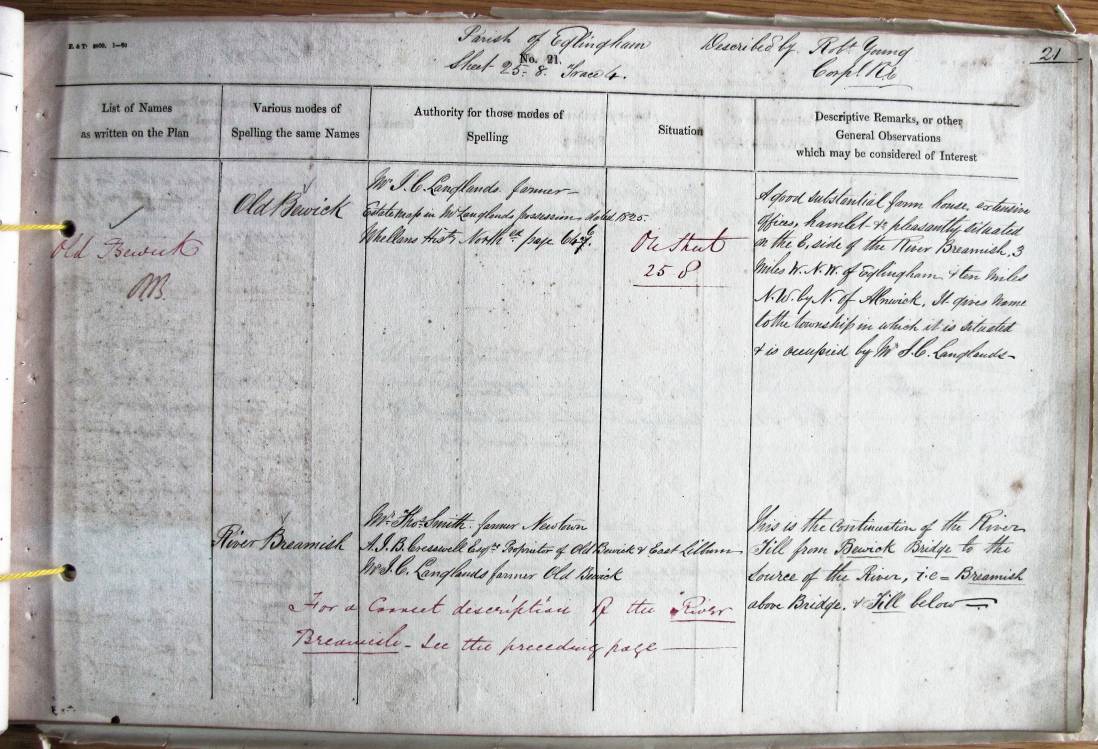 E. & T. 2000. 1-60
Parish of Eglingham
Described by Robt. Young
21
No. 21.
Sheet 25.8. Trace 4.
Corpl. R.E.
List of Names
as written on the Plan
Various modes of
Spelling the same Names
Authority for those modes of
Spelling
Situation
Descriptive Remarks, or other
General Observations
which may be considered of Interest
Old Bewick
Old Bewick
Mr. J. C. Langlands. farmer
Estate map in Mr. Langlands possession dated 1825.
Whellans Hist. North page
On Sheet
25 8
A good substantial farm house, extensive
Offices, hamlet &c pleasantly situated
on the E. side of the River Breamish, 3
Miles W.N.W. of Eglingham & ten Miles
N.W. by N. of Alnwick, It gives Name
to the township in which it is situated
& is occupied by Mr. J. C. Langlands
River Breamish
Mr. Thos. Smith. farmer Newtown
A. J. B. Cresswell Esqre. Proprietor of Old Bewick & East Lilburn
Mr. J. C. Langlands farmer Old Bewick
This is the continuation of the River
Till from Bewick Bridge to the
Source of the River, i.e = Breamish
above Bridge. & Till below
For a Correct description of the River
Breamish - See the preceding page